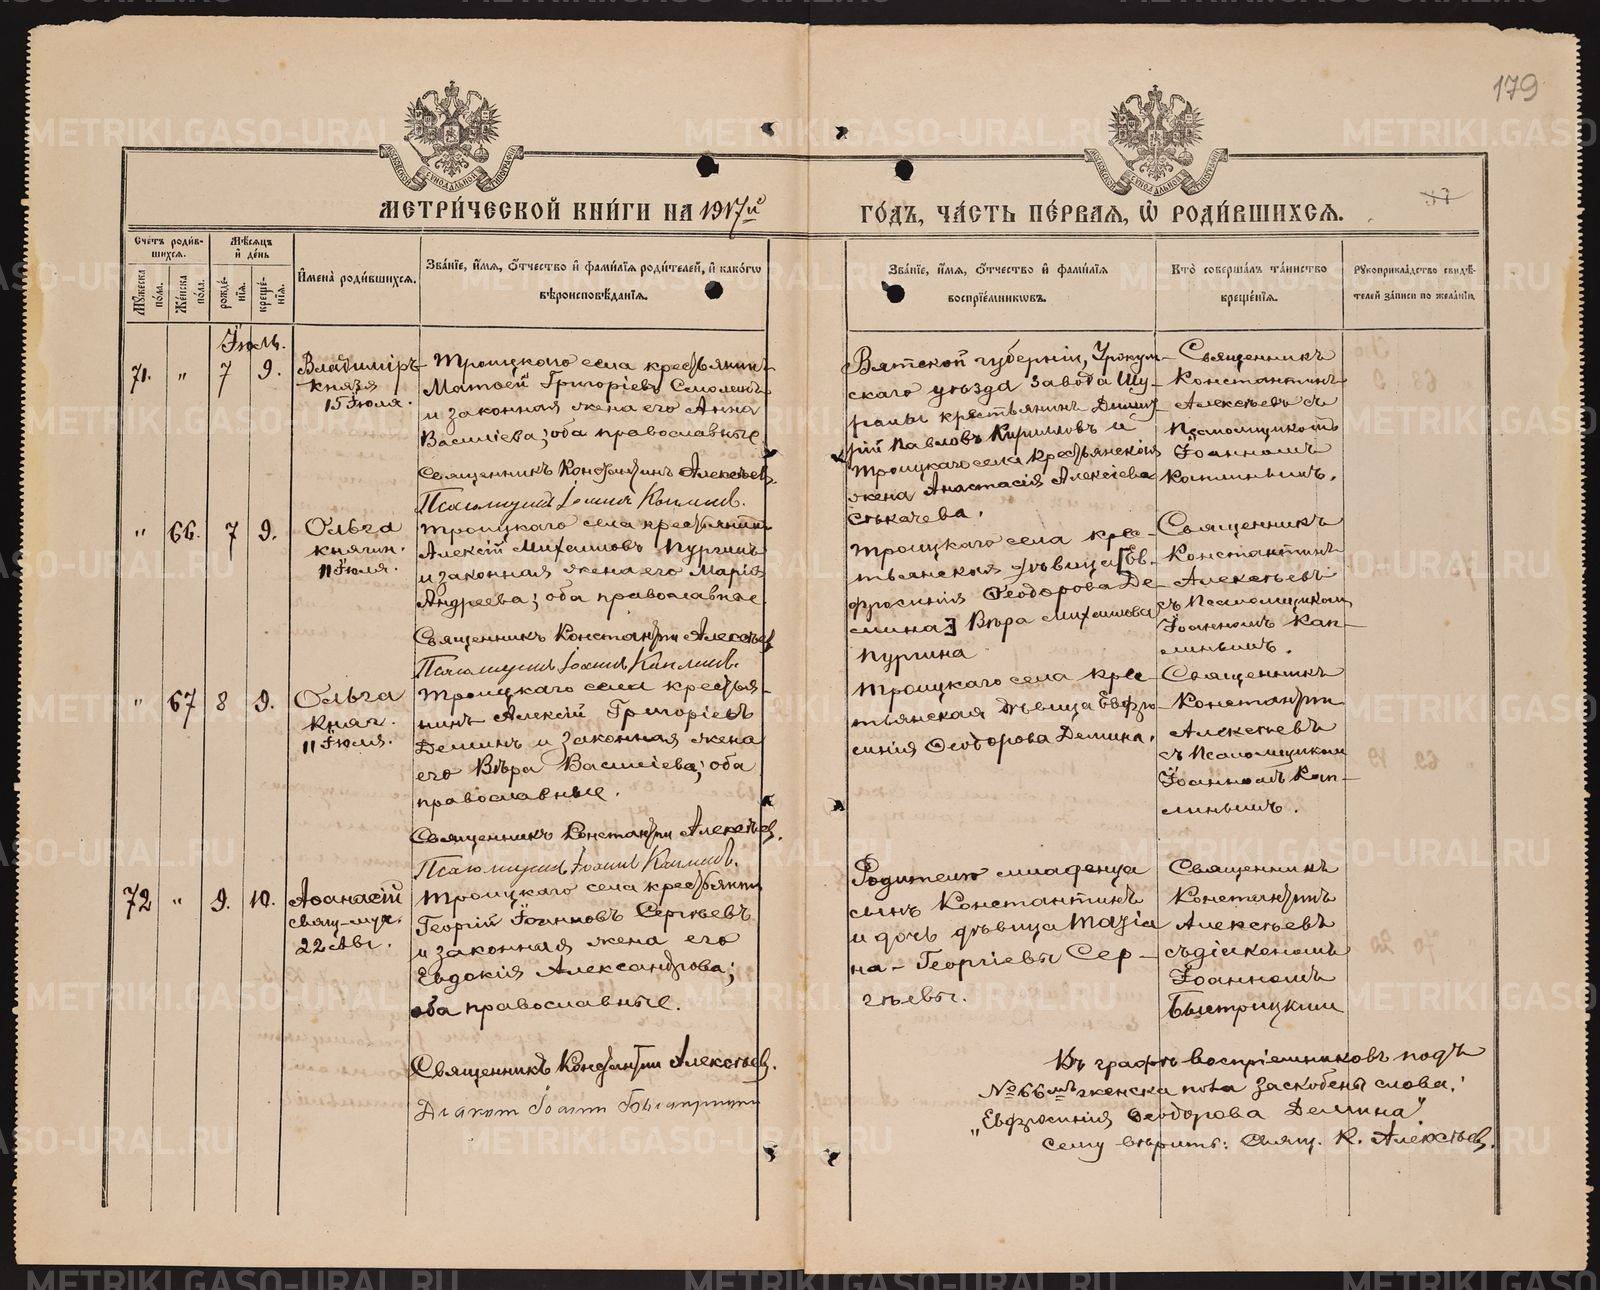 179
МЕТРИ́ЧЕСКОЙ КНИ́ГИ НА 1917й
ГО́ДЪ, ЧА́СТЬ ПЕ́РВАЯ, Ѡ РОДИ́ВШИХСЯ.
Сче́тъ роди́в-
шихся.
Му́жеска по́ла.
Же́нска по́ла.
Мѣ́сяцъ
и де́нь
рожде́-
нія.
креще́-
нія.
Имена̀ роди́вшихся.
Зва́ніе, и́мя, о́тчество и фами́лія роди́телей, и како́гѡ
вѣроисповѣ́данія.
Зва́ніе, и́мя, о́тчество и фами́лія
воспріе́мниковъ.
Кто̀ соверша́лъ та́инство
креще́нія.
Рукоприкла́дство свидѣ́-
телей за́писи по жела́нію.
Іюль.
71. " 7 9.
Владиміръ
князя
15 Іюля.
Троицкаго села крестьянинъ
Матѳей Григоріевъ Смолинъ
и законная жена его Анна
Василіева; оба православные
Священникъ Константинъ Алексѣевъ.
Псаломщикъ Іоаннъ Каплинъ.
Вятской губерніи, Уржум-
скаго уѣзда завода Шу-
ралы крестьянинъ Димит-
рій Павловъ Кирилловъ и
Троицкаго села крестьянская
жена Анастасія Алексіева
Стькачева.
Священникъ
Константинъ
Алексѣевъ съ
Псаломщикомъ
Іоанномъ
Каплинымъ.
" 66. 7 9.
Ольга
княгин.
11 Іюля.
Троицкаго села крестьянинъ
Алексій Михаиловъ Пургинъ
и законная жена его Марія
Андреева; оба православные.
Священникъ Константинъ Алексѣевъ
Псаломщикъ Іоаннъ Каплинъ.
Троицкаго села крес-
тьянская дѣвица [Ев-
фросинія Ѳеодорова Де-
мина] Вѣра Михаилова
Пургина
Священникъ
Константинъ
Алексѣевъ
съ Псаломщикомъ
Іоанномъ Кап-
линымъ.
" 67 8 9.
Ольга
княг.
11 Іюля.
Троицкаго села крестья-
нинъ Алексій Григоріевъ
Деминъ и законная жена
его Вѣра Василіева; оба
православные.
Священникъ Константинъ Алексѣевъ.
Псаломщикъ Іоаннъ Каплинъ.
Троицкаго села крес-
тьянская дѣвица Евфро-
синія Ѳеодорова Демина.
Священникъ
Константинъ
Алексѣевъ
съ Псаломщикомъ
Іоанномъ Кап-
линымъ.
72 " 9. 10.
Аѳанасій
свящ-муч.
22 Авг.
Троицкаго села крестьянинъ
Георгій Іоанновъ Сергѣевъ
и законная жена его
Евдокія Александрова;
оба православные.
Священникъ Константинъ Алексѣевъ.
Діаконъ Іоаннъ Быстрицкій
Родителю младенца
сынъ Константинъ
и дочь дѣвица Магіа
на - Георгіевы Сер-
гѣевы.
Священникъ
Константинъ
Алексѣевъ
съ діакономъ
Іоанномъ
Быстрицкимъ
Въ графѣ воспріемниковъ подъ
№ 66мъ женска пола заскоблены слова:
„Евфросинія Ѳеодорова Демина"
сему вѣрить: Свящ. К. Алексѣевъ.